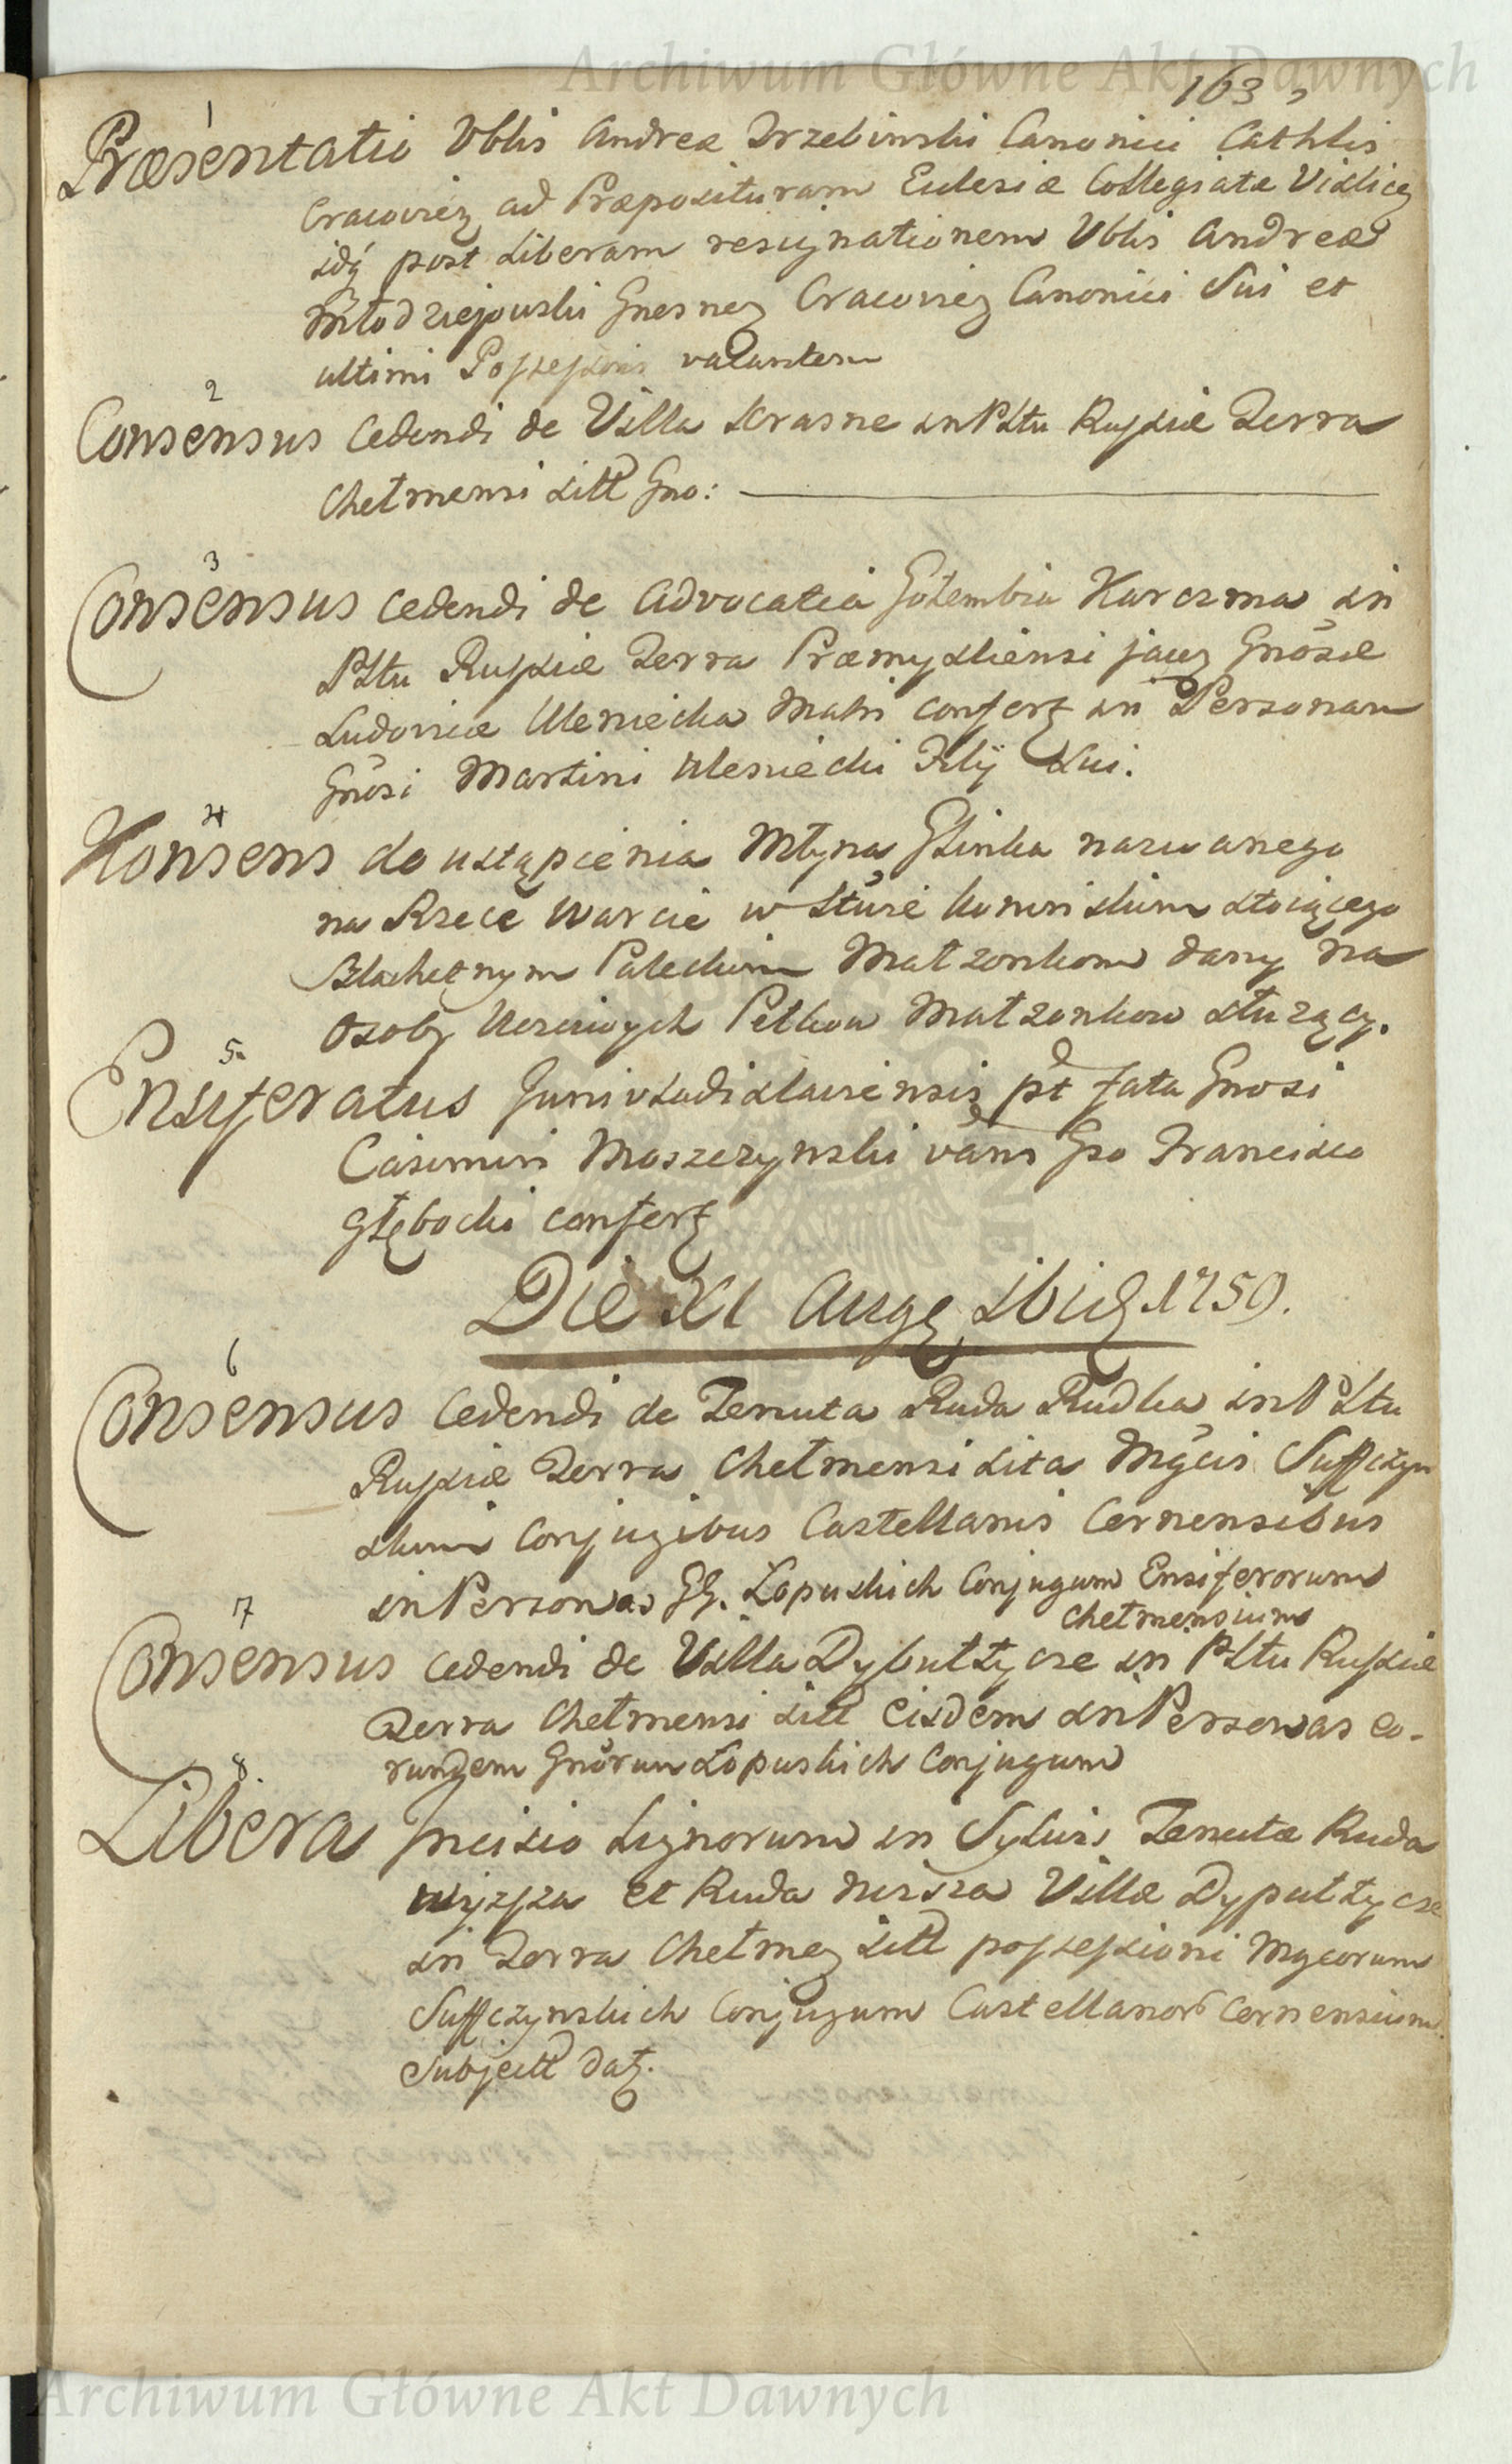 Archiwum Główne Akt Dawnych
163
1
Præsentatio Vblis Andreæ Trzebinski Canonici Cathlis
Cracovien ad Præposituram Eclesiæ Collegiatæ Vislicen
idq post Liberam resignationem Vblis Andreæ
Młodziejowski Gnesnen Cracovien Canonici Sui et
ultimi Possessoris vacantem
2
Consensus cedendi de Villa Krasne in Pltu Russiæ Terra
Chełmensi sitt Gno:
3
Consensus cedendi de Advocatia Gołembia Karczma in
Pltu Russiæ Terra Præmysliensi jacen Gnosæ
Ludovicæ Uleniecka Matri confert in Personam
Gnosi Martini Uleniecki Filij Sui.
4
Konsens do ustąpienia Młyna Glinka nazwanego
na Rzece Warcie w Stwie Koninskim stoiącego
Szlachetnym Paleckim Małzonkom dany na
Osoby Uczciwych Petkow Małzonkow słuzący.
5
Ensiferatus Junivladislaviensis pt fata Gnosi
Casimiri Moszczynski vans Gso Francisco
Głębocki confert
Die XI Augg ibid 1759.
6
Consensus cedendi de Tenuta Ruda Rudka in Pltu
Russiæ Terra Chełmensi sita Mgcis Suffczyn
skim Conjugibus Castellanis Cernensibus
in Personas GG. Łopuskich Conjugum Ensiferorum
Chełmensium
7
Consensus cedendi de Villa Dybułtycze in Pltu Russiæ
Terra Chełmensi sitt eisdem in Personas eo-
rundem Gnorum Łopuskich Conjugum
8
Libera Incisio Lignorum in Sylvis Tenutæ Ruda
wyzsza et Ruda nizsza Villæ Dypułtycze
in Terra Chełmen sitt possessioni Mgcorum
Suffczynskich Conjugum Castellanor Cernensium
Subject dat.
Archiwum Główne Akt Dawnych